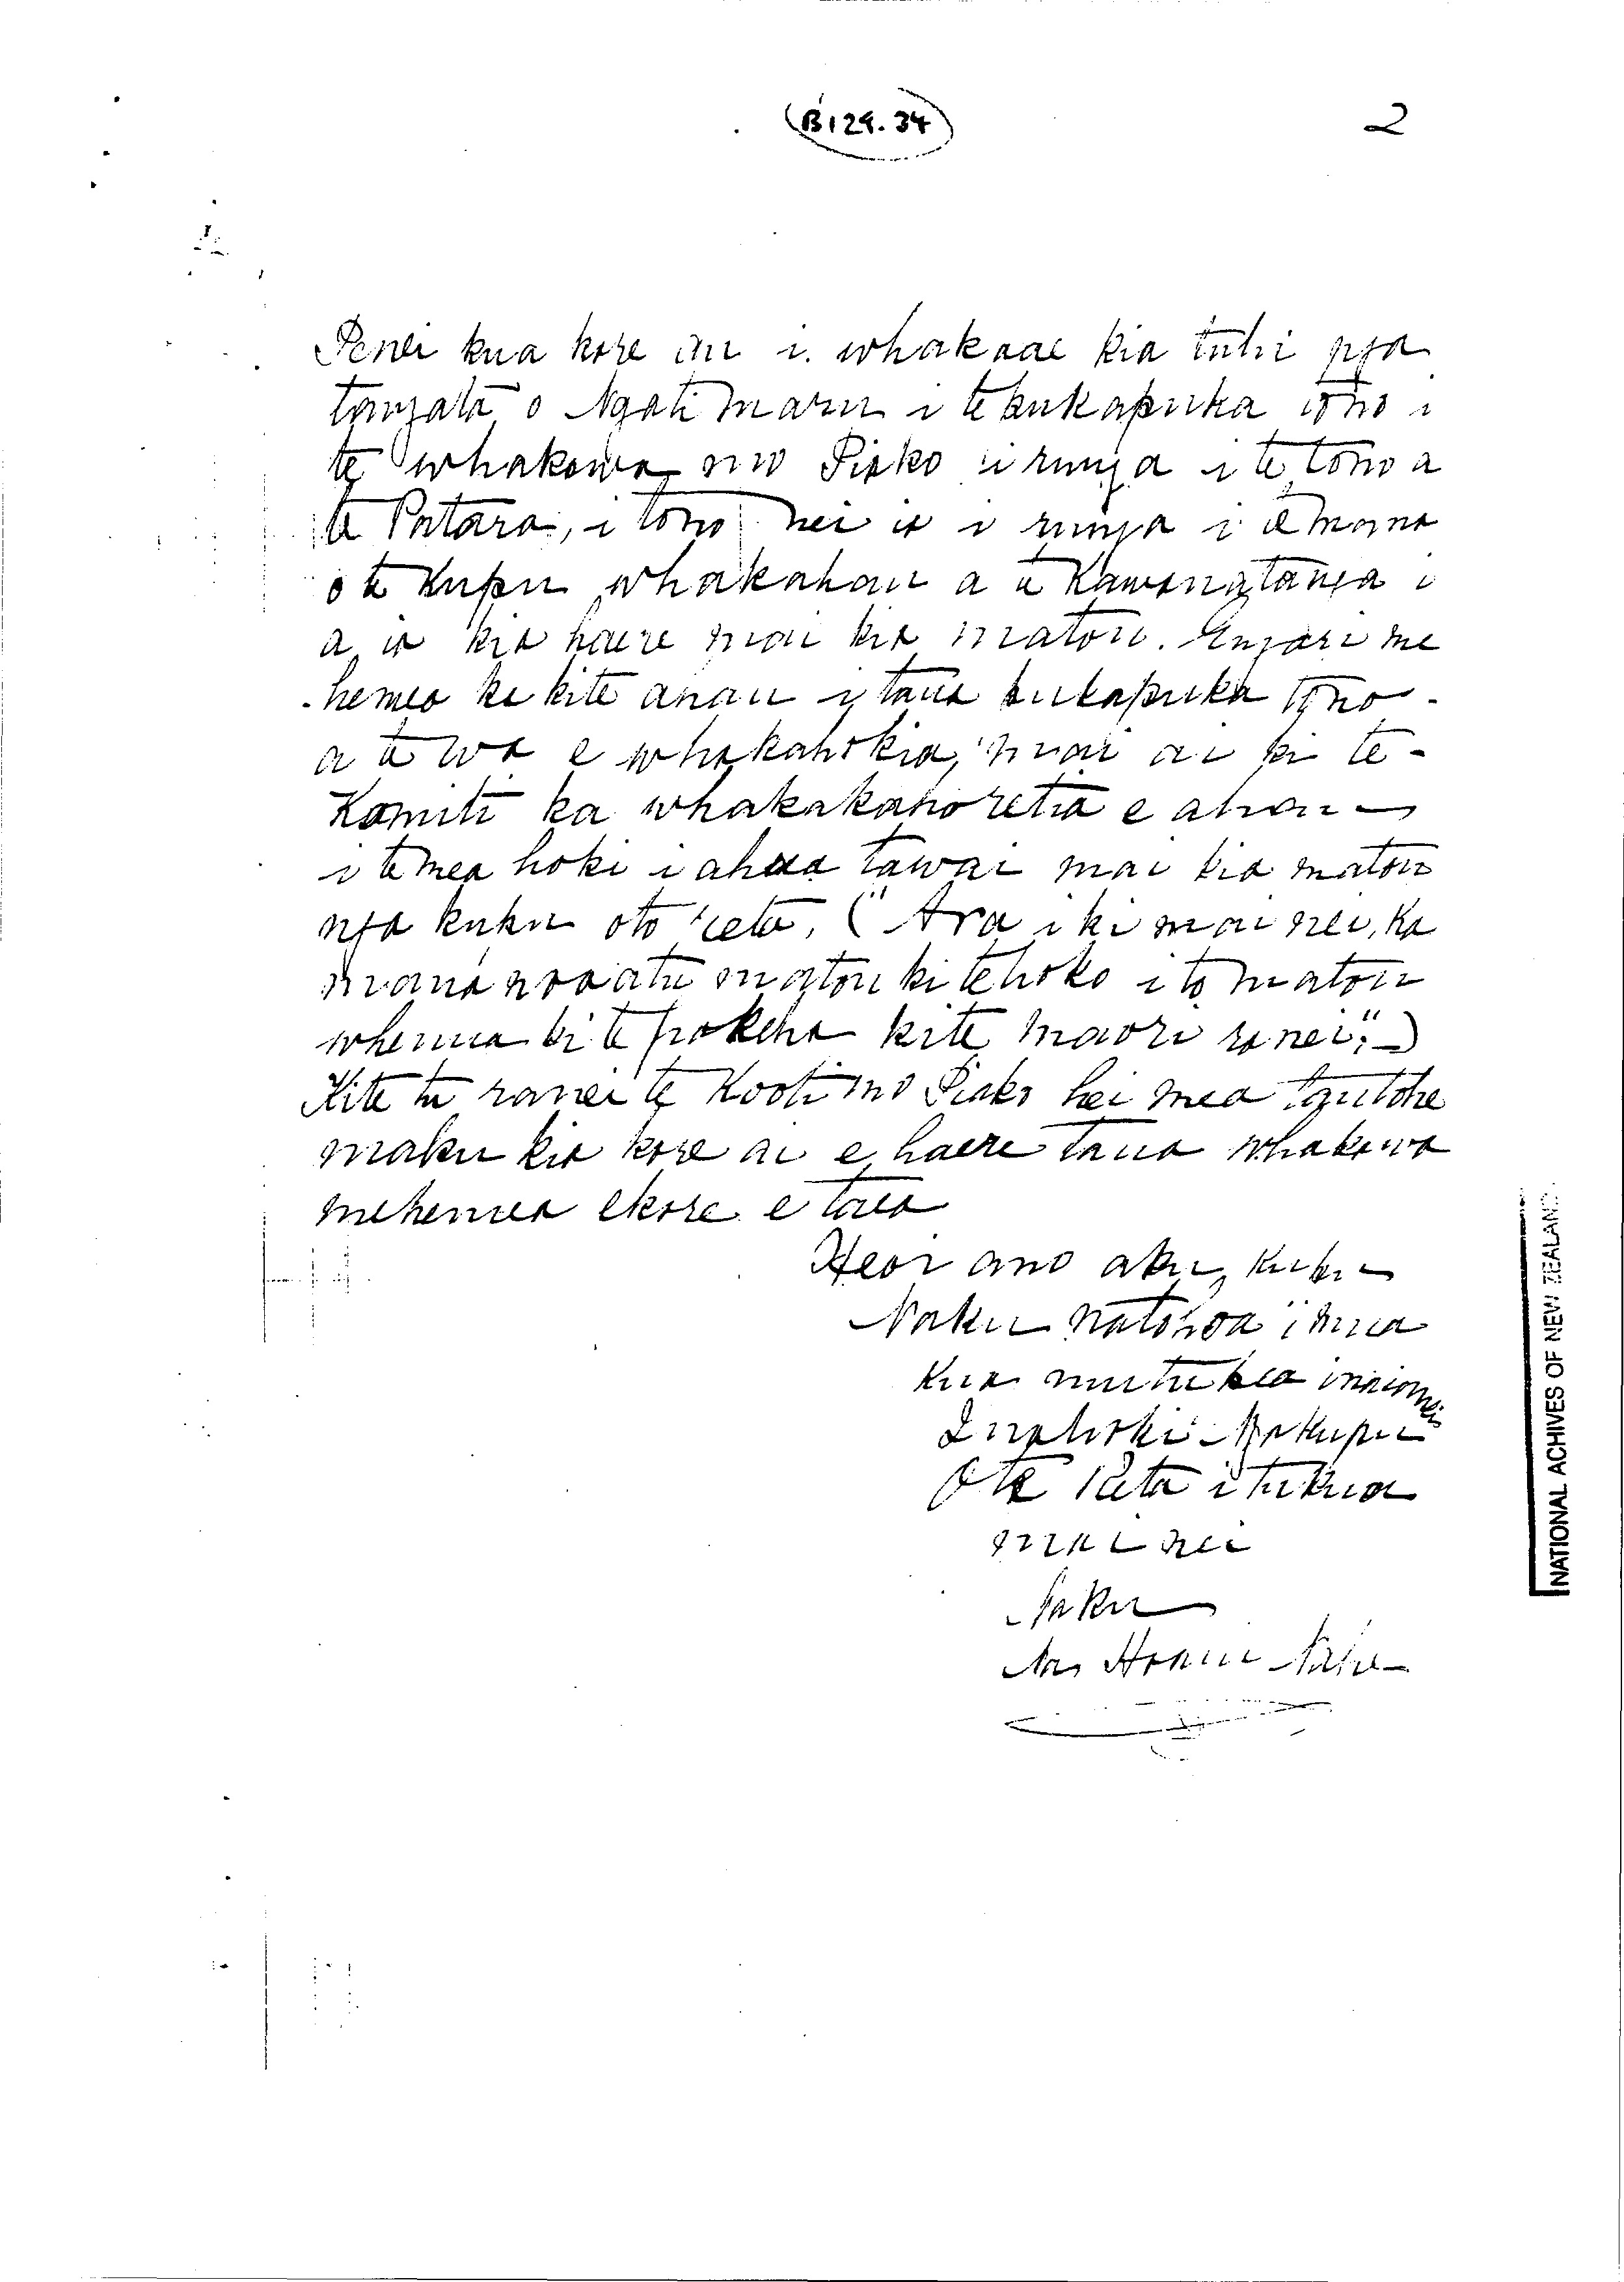 B129.34
2
Penei kua kore au i whakaae kia tuhi nga
tangata o Ngati maru i te pukapuka tono i
te whakawa mo Piako i runga i te tono a
te Patara, i tono nei ia i runga i te mana
o te Kupu whakahau a te Kawanatanga i
a ia kia haere mai kia matou. Engari me
hemea ka kite anau i taua pukapuka tono
a te wa e whakahokia mai ai ki te
Komiti ka whakakahoretia e ahau
i te mea hoki i ahua tawai mai kia matou
nga kupu oto reta, ("Ara i ki mai nei, Ka
mana noa atu matou ki te hoko i to matou
whenua ki te pakeha ki te maori ranei.")
Kite tu ranei te Kooti mo Piako hei mea tautohe
maku kia kore ai e haere taua whakawa
mehemea ekore e taea
Heoi ano aku kupu
Naku na to hoa i mua
Kua mutu kea inaianei
nga kupu
O te Reta i tukua
mai nei
Naku
Na Hoani Nahe
NATIONAL ACHIVES OF NEW ZEALAND